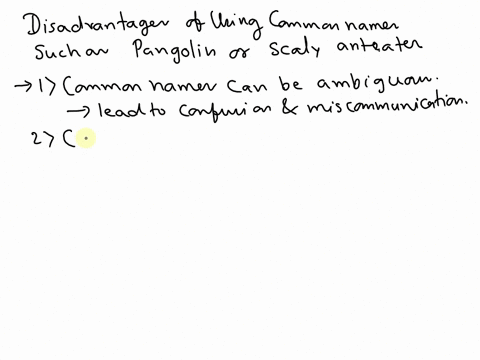 Disadvantages of Using Common names
Such as Pangolin or scaly anteater
→ 1> Common names can be ambiguous.
→ lead to confusion & miscommunication.
2> C